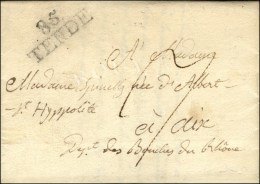 85
TENDE
A Madame
Madame Spinely née d'Albert
St Hyppolite
à aix
Dept des Bouches du Rhône